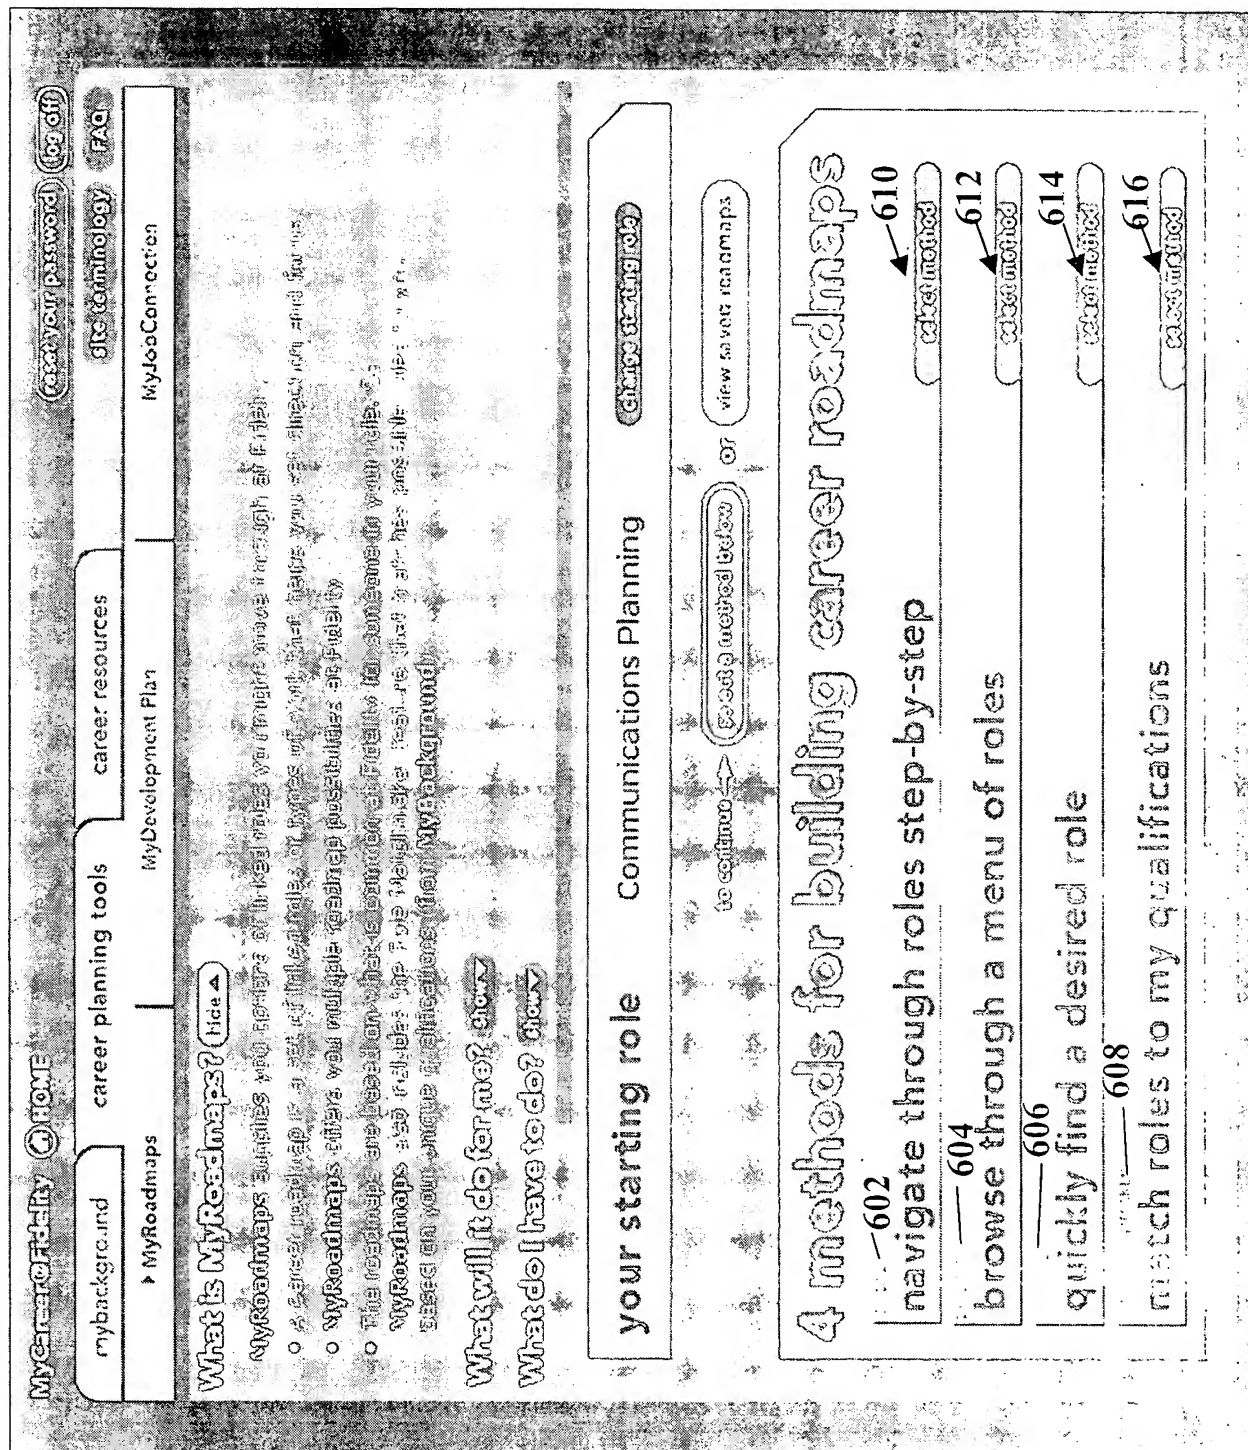 MyCareer@Fidelity HOME
reset your password log off
mybackground career planning tools career resources
site terminology FAQ
MyRoadmaps MyDevelopment Plan MyJobConnection
What is MyRoadmaps? hide
MyRoadmaps supplies you options of linked roles you might move through at
A career roadmap is a set of linked roles
MyRoadmaps offers you multiple roadmap possibilities at Fidelity
The roadmaps are based on what is common at Fidelity for someone in your role.
MyRoadmaps also includes the
based on your unique qualifications (from MyBackground)
What will it do for me? show
What do I have to do? show
your starting role Communications Planning change starting role
to continue select a method below or view saved roadmaps
4 methods for building career roadmaps
602
navigate through roles step-by-step select method 610
604
browse through a menu of roles select method 612
606
quickly find a desired role select method 614
608
match roles to my qualifications select method 616